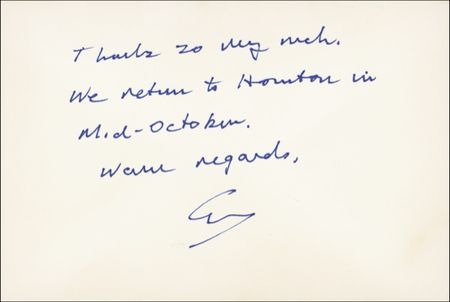 Thanks so very much.
We return to Houston in
Mid-October.
Warm regards,